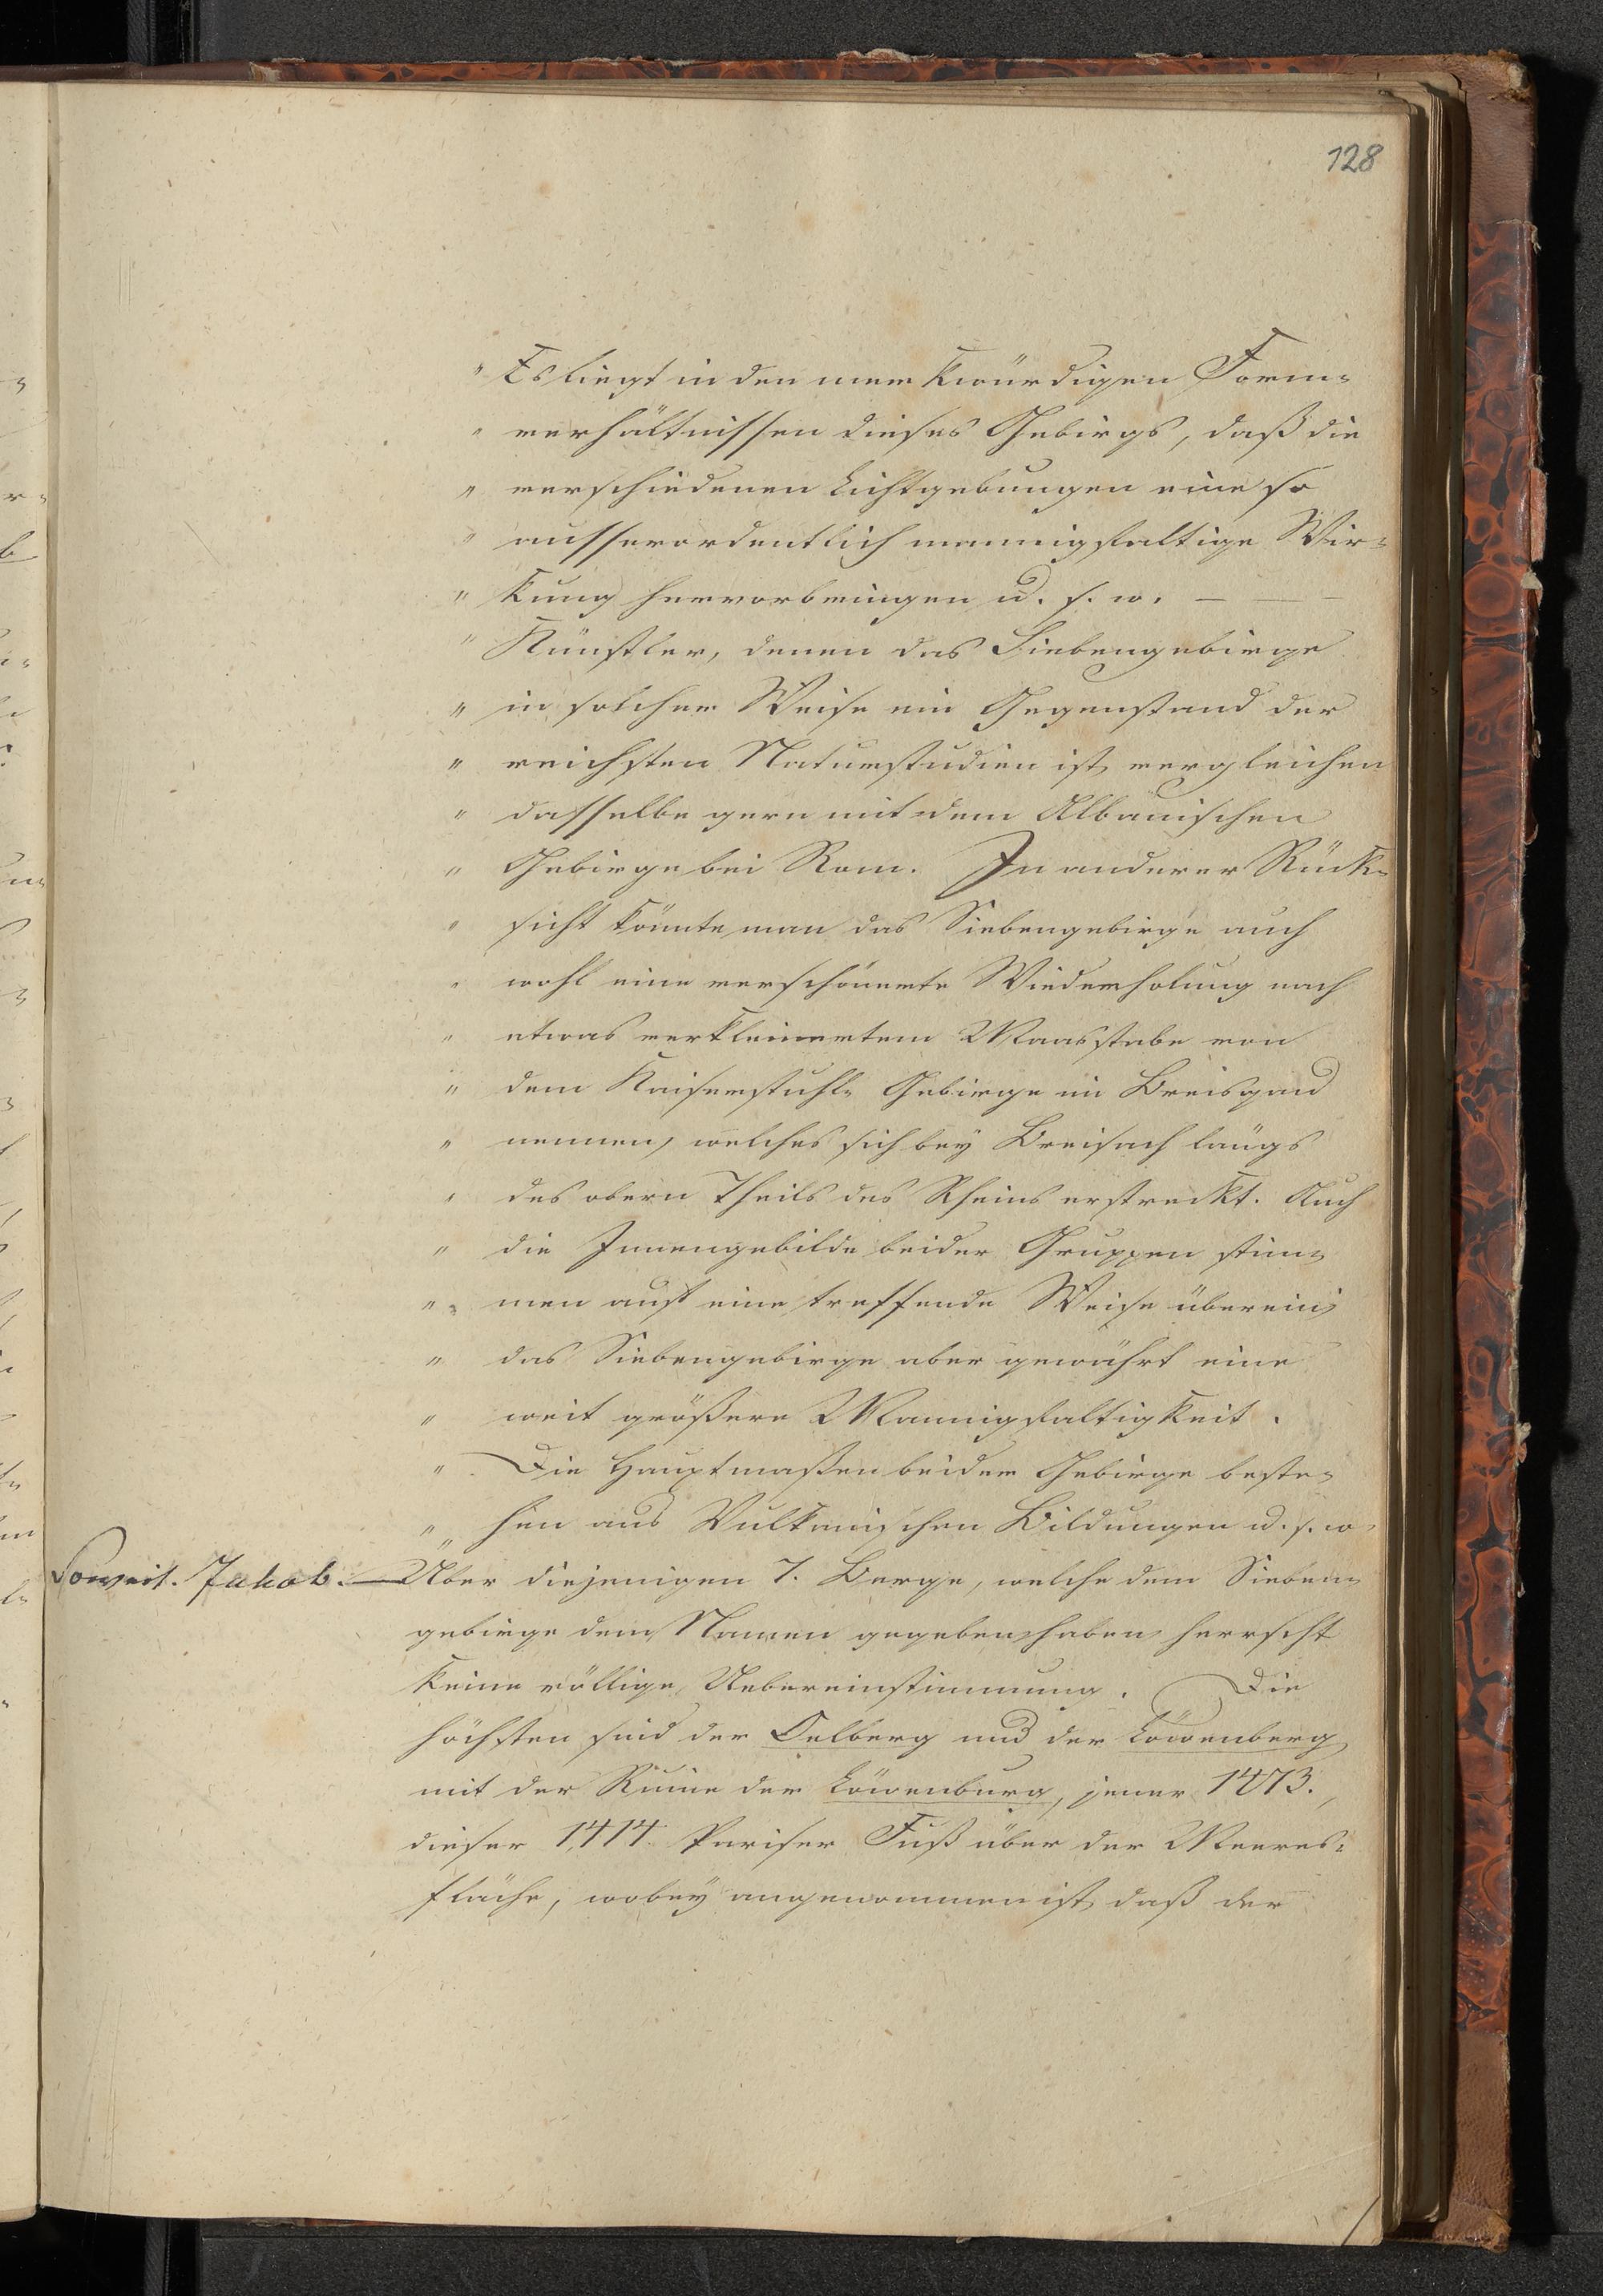 128
" Es liegt in den merkwürdigen Form-
" verhältnissen dieses Gebirgs, daß die
" verschiedenen Lichtgebungen eine so
" ausserordentlich mannigfaltige Wir-
" kung hervorbringen u. s. w. — — —
" Künstler, denen das Siebengebirge
" in solcher Weise ein Gegenstand der
" reichsten Naturstudien ist, vergleichen
" dasselbe gern mit dem Albanischen
" Gebirge bei Rom. In anderer Rück-
" sicht könnte man das Siebengebirge auch
" wohl eine verschönerte Wiederholung nach
" etwas verkleinertem Maasstabe von
" dem Kaiserstuhl- Gebirge im Breisgau
" nennen, welches sich bey Breisach längs
" des obern Theils des Rheins erstreckt. Auch
" die Innengebilde beider Gruppen stim-
" men auf eine treffende Weise überein;
" das Siebengebirge aber gewährt eine
" weit größere Mannigfaltigkeit.
" Die Hauptmaßen beider Gebirge beste-
" hen aus Vulkanischen Bildungen u. s. w
Soweit. Jakob. — Uber diejenigen 7. Berge, welche dem Sieben-
gebirge den Namen gegeben haben, herrscht
keine völlige Uebereinstimmung. Die
höchsten sind der Oelberg und der Löwenberg
mit der Ruine der Löwenburg, jener 1473.,
dieser 1,414 Pariser Fuß über der Meeres-
fläche, wobey angenommen ist, daß der